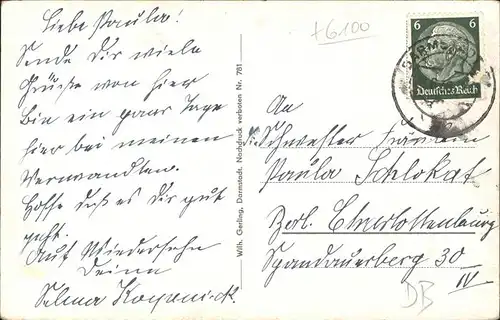 Liebe Paula!
Sende Dir viele
Grüße von hier
bin ein paar Tage
hier bei meinen
Verwandten.
Hoffe daß es Dir gut
geht.
Auf Wiedersehn
Deine
Selma
Wilh. Gerling, Darmstadt. Nachdruck verboten Nr. 781
+6100
6 6
Deutsches Reich
An
Schwester Fräulein
Paula Schlokat
Berl. Charlottenburg
Spandauerberg 30
IV
DB